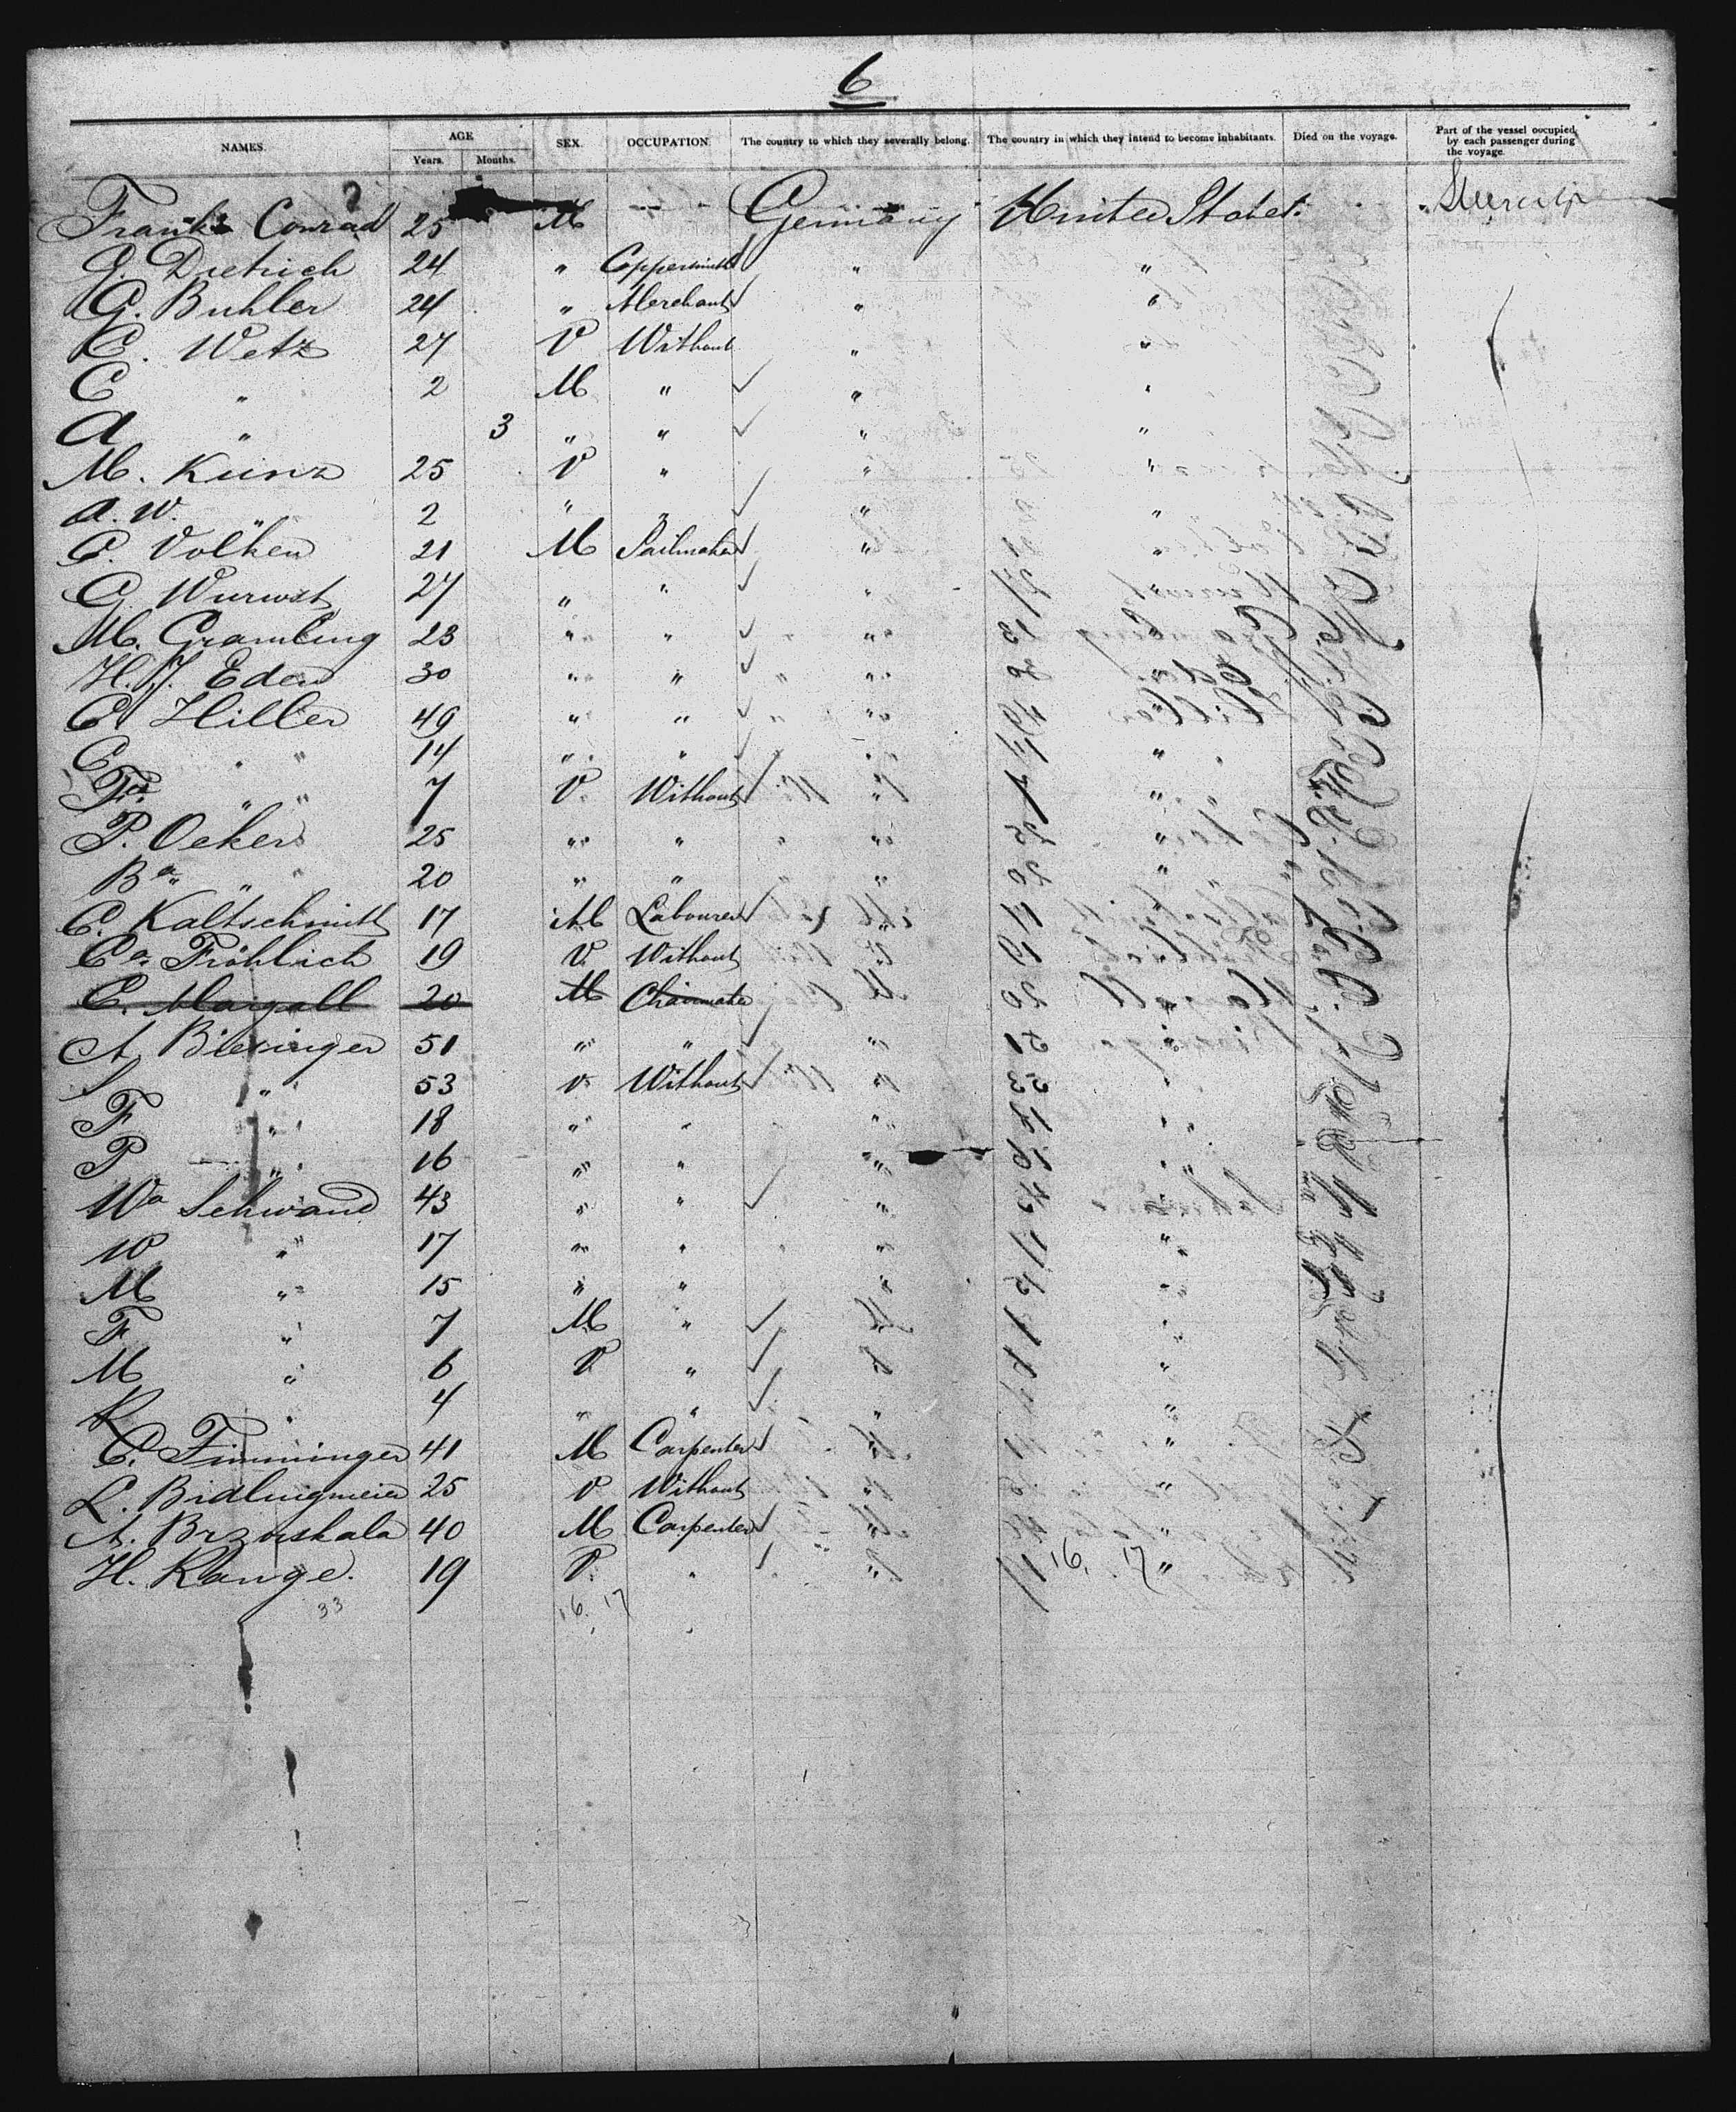 6
NAMES. AGE Years. Months. SEX. OCCUPATION. The country to which they severally belong. The country in which they intend to become inhabitants. Died on the voyage. Part of the vessel occupied by each passenger during the voyage.
Conrad 25 M Germany United States.
Dietrich 24 " Coppersmith " "
G. Buhler 24 " Merchant " "
C. Wetz 27 V Without " "
C " 2 M " " "
A " 3 " " " "
M. Kunz 25 V " " "
A. W. 2 " " " "
C. Völken 21 M Sailmaker " "
G. Wurwst 27 " " " "
M. Gramling 23 " " " "
H. J. Eden 30 " " " "
C. Hiller 49 " " " "
C " " 14 " " " "
Fr. " " 7 V Without " "
P. Oeker 25 " " " "
Ba " " 20 " " " "
C. Kaltschmitt 17 M Labourer " "
Ca. Fröhlich 19 V Without " "
C. Margall 20 M Chairmaker
A. Biexinger 51 " " " "
S " 53 V Without " "
F " 18 " " " "
P " 16 " " " "
Wa Schwand 43 " " " "
W " 17 " " " "
M " 15 " " " "
F " 7 M " " "
M " 6 V " " "
K " 4 " " " "
C. Fimminger 41 M Carpenter " "
L. Bidlingmeier 25 V Without " "
A. Brzoskala 40 M Carpenter " "
H. Range. 19 V " " 16. 17 "
33 16. 17